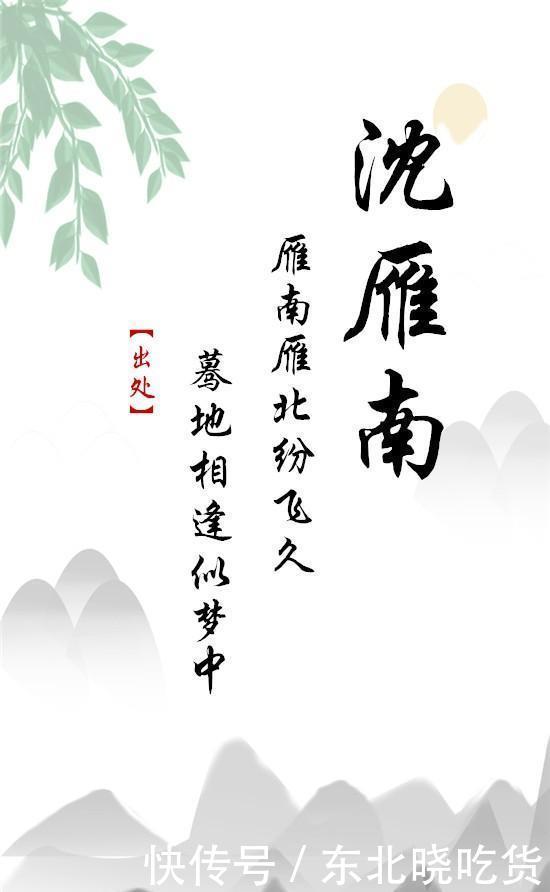 沈雁南
雁南雁北纷飞久
蓦地相逢似梦中
【出处】
快传号/东北晓吃货